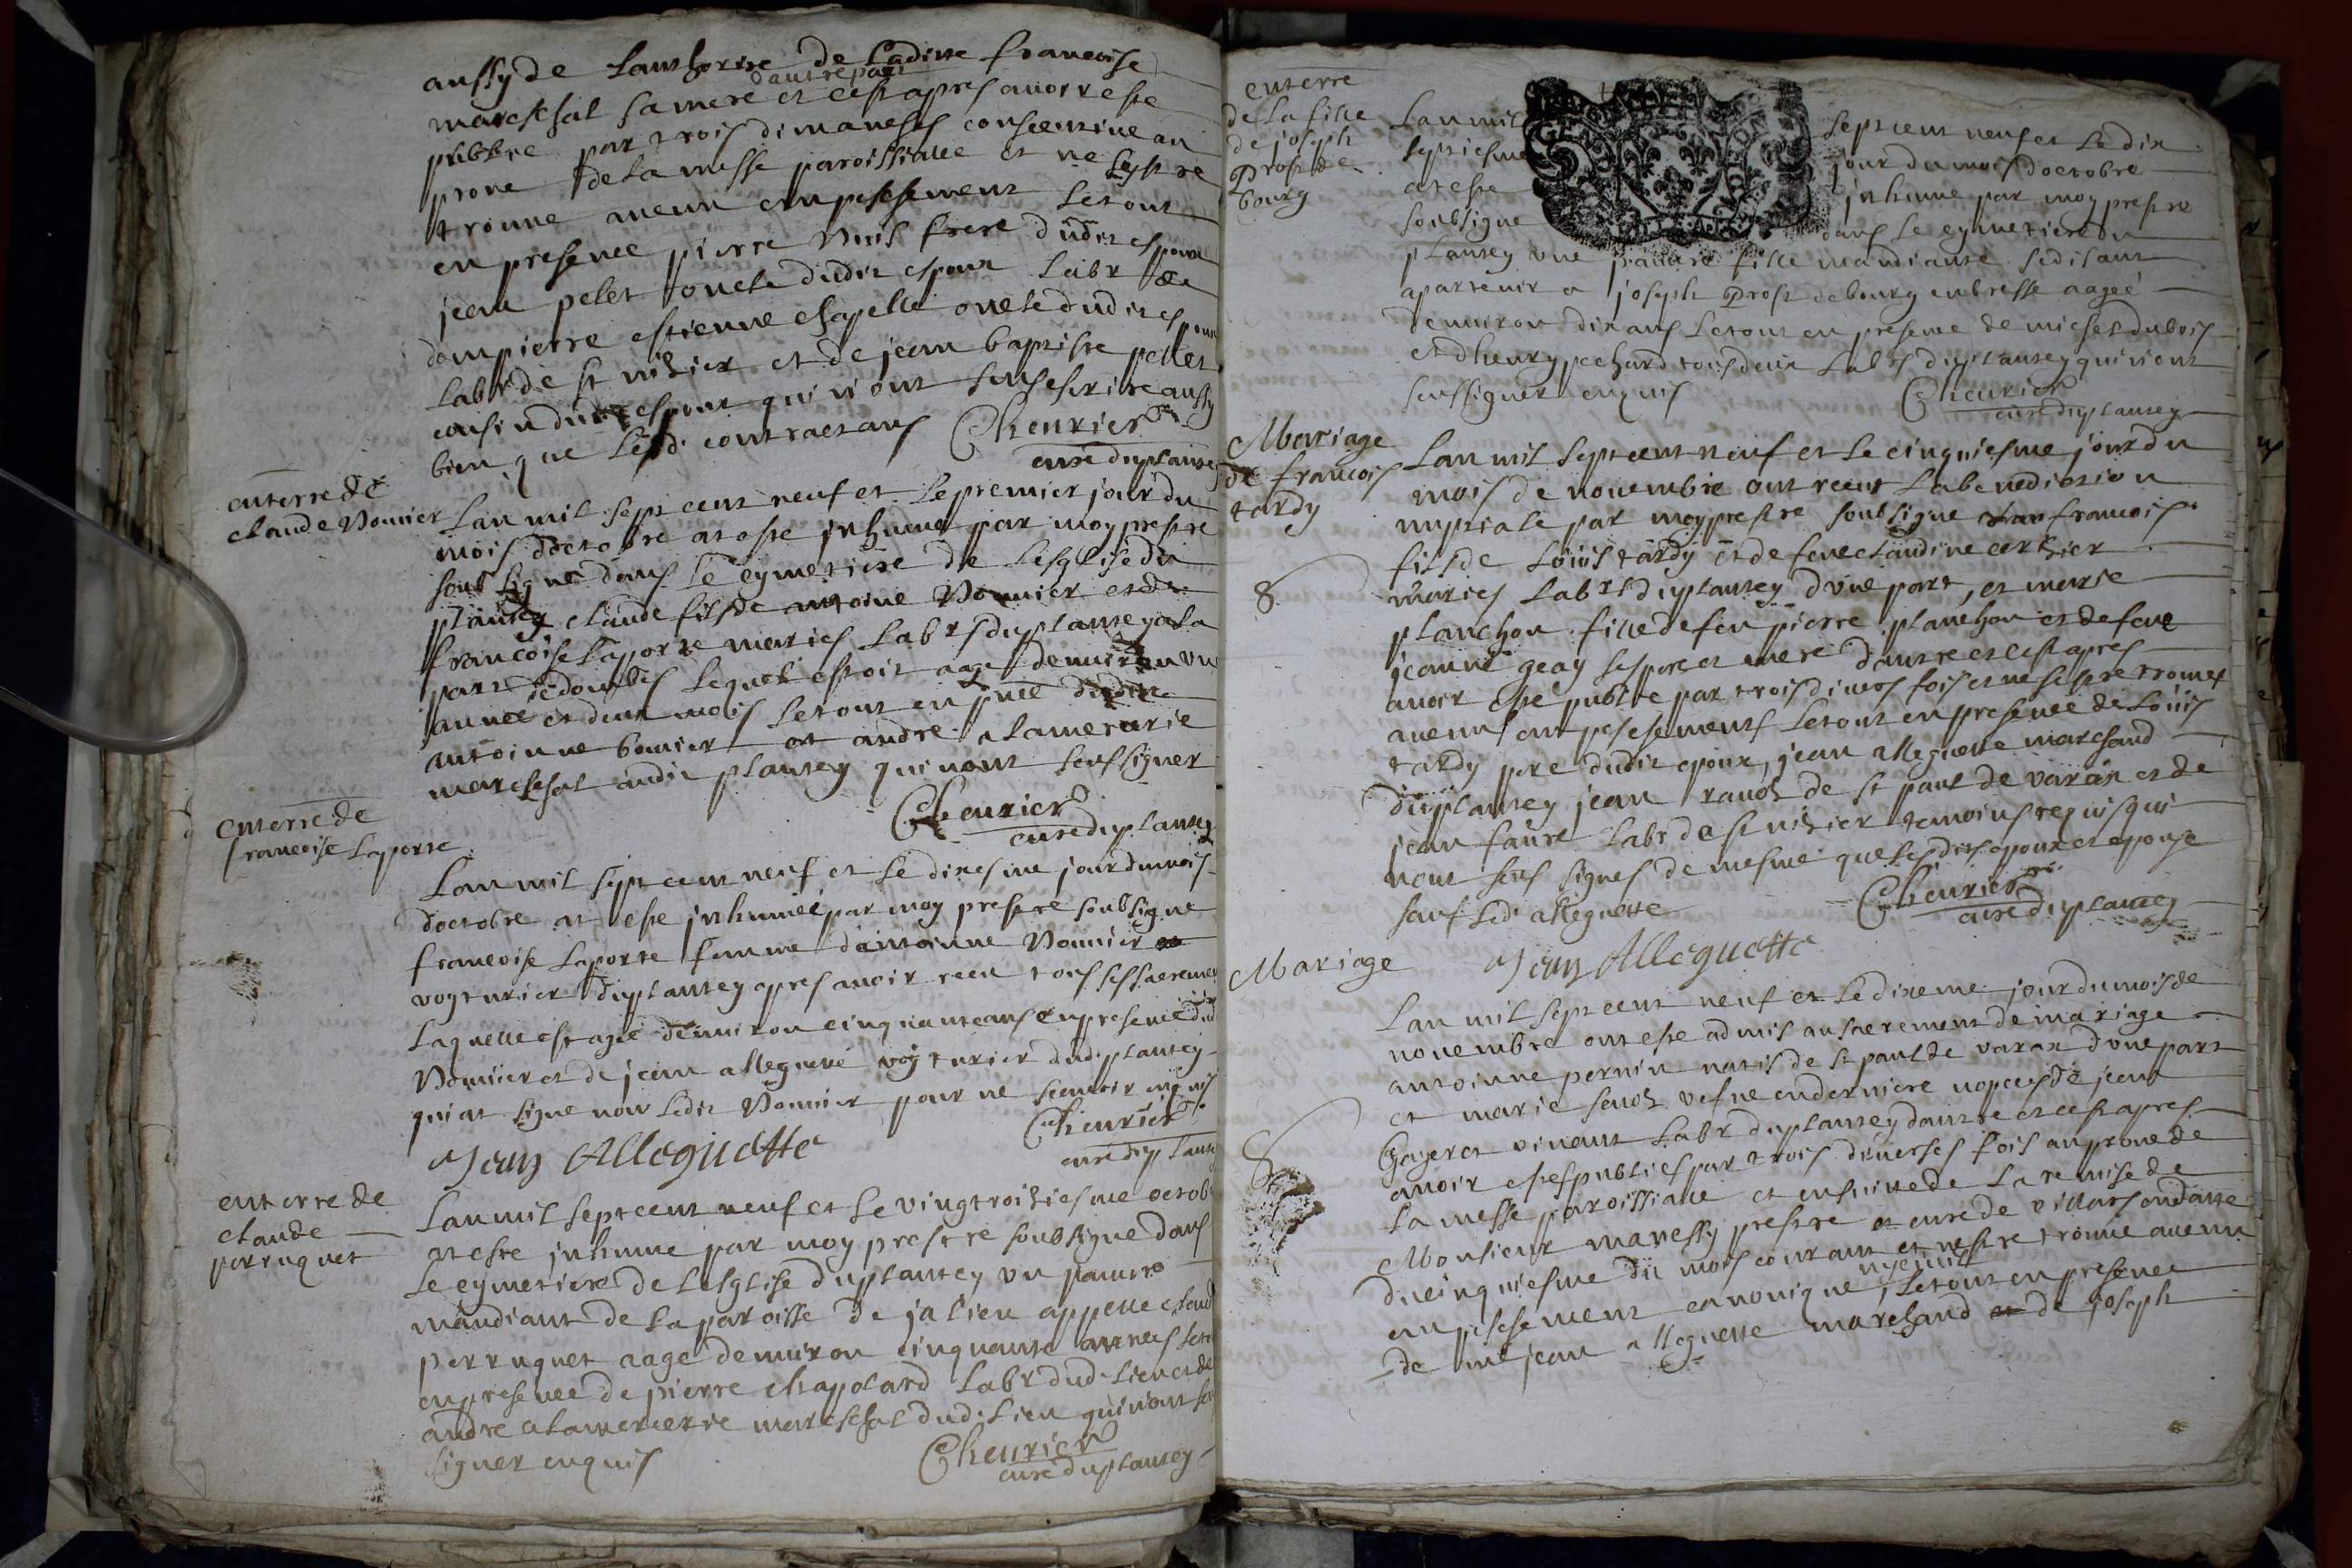 aussy de lauthorite de Laditte francoise
mareschal sa mere dautre part et cest apres avoir este
publiee par trois dimanches consecutive au
prone de la messe paroissialle et ne sest
trouve aucun empeschement Le tout
en presence pierre frere dudit espoux
jean pelet oncle dudit espoux labr de
dompierre estienne chapelle oncle dudit espoux
labr de st nizier et de jean baptiste pellet
cousin dudit espoux qui nont seu escrire aussy
bien que lesd contractans Cheurier
curé du plantey
enterre de
claude Vonnier
Lan mil sept cent neuf et le premier jour du
mois doctobre at este jnhumé par moy prestre
soubsigné dans le cymetiere de Lesglise du
plantey claude fils de antoine Vonnier et de
francoise Laporte mariés labrs du plantey a la
part de dombes lequel estoit agé denviron un
annee et deux mois le tout en pnce dudit
antoinne Vonnier et andre alamercerie
mareschal audit plantey qui nont seu signer
Cheurier
curé du plantey
enterre de
francoise Laporte
Lan mil sept cent neuf et le dixesme jour du mois
doctobre at este jnhumeé par moy prestre soubsigne
francoise Laporte femme dantoinne Vonnier
voyturier du plantey apres avoir receu tous ses sacremen
laquelle est agée denviron cinquante ans en presence dud
Vonnier et de jean alleguette voyturier dud plantey
qui at signe non ledit Vonnier pour ne scavoir enquis
Cheurier
curé du plantey
Jean Alleguette
enterre de
claude
perruquet
Lan mil sept cent neuf et le vingtroiziesme octob
at este jnhume par moy prestre soubsigne dans
le cymetiere de Lesglise du plantey un pauvre
mandiant de la paroisse de jalieu appelle claud
perruquet aage denviron cinquante annees le to
en presence de pierre chapolard labr dud lieu et de
andre alamercerie mareschal dud lieu qui nont seu
signer enquis
Cheurier
curé du plantey
enterre
de la fille
de joseph
Prost de
bourg
Lan mil sept cent neuf et le dix
septiesme jour du mois doctobre
at este jnhume par moy prestre
soubsigne dans le cymetiere du
plantey une pauvre fille mandiante se disant
apartenir a joseph Prost de bourg en bresse aageé
denviron dix ans le tout en presence de michel dubois
et dhenry pechard tous deux labrs du plantey qui nont
seu signer enquis
Cheurier
curé du plantey
Mariage
de francois
tardy
8
Lan mil sept cent neuf et le cinquiesme jour du
mois de novembre ont receu la benediction
nuptiale par moy prestre soubsigne francois
fils de Louis tardy et de feue claudine
mariés labrs du plantey dune part, et marie
planchon fille de feu pierre planchon et de feue
jeanne geay ses pere et mere dautre et cest apres
avoir esté publié par trois divers fois et ne sestre trouvé
aucun empeschement le tout en presence de Louis
tardy pere dudit epoux, jean alleguette marchand
du plantey jean ravoz de st paul de varax et de
jean faure labr de st nizier temoins requis qui
nont seus signes de mesme que lesdits epoux et epouse
sauf led alleguette
Cheurier
curé du plantey
Jean Alleguette
Mariage
Lan mil sept cent neuf et le dixeme jour du mois de
novembre ont este admis au sacrement de mariage
antoinne pernin natif de st paul de varax dune part
et marie vefue en derniere nopces de jean
Gayeret vivant labr du plantey dautre et cest apres
avoir estes publies par trois diverses fois au prone de
la messe paroissialle et ensuitte de la remise de
Monsieur manessy prestre et curé de villars en datte
du cinquiesme du mois courant et nestre trouvé aucun
empeschement canonique ny civil le tout en presence
de me jean alleguette marchand de joseph